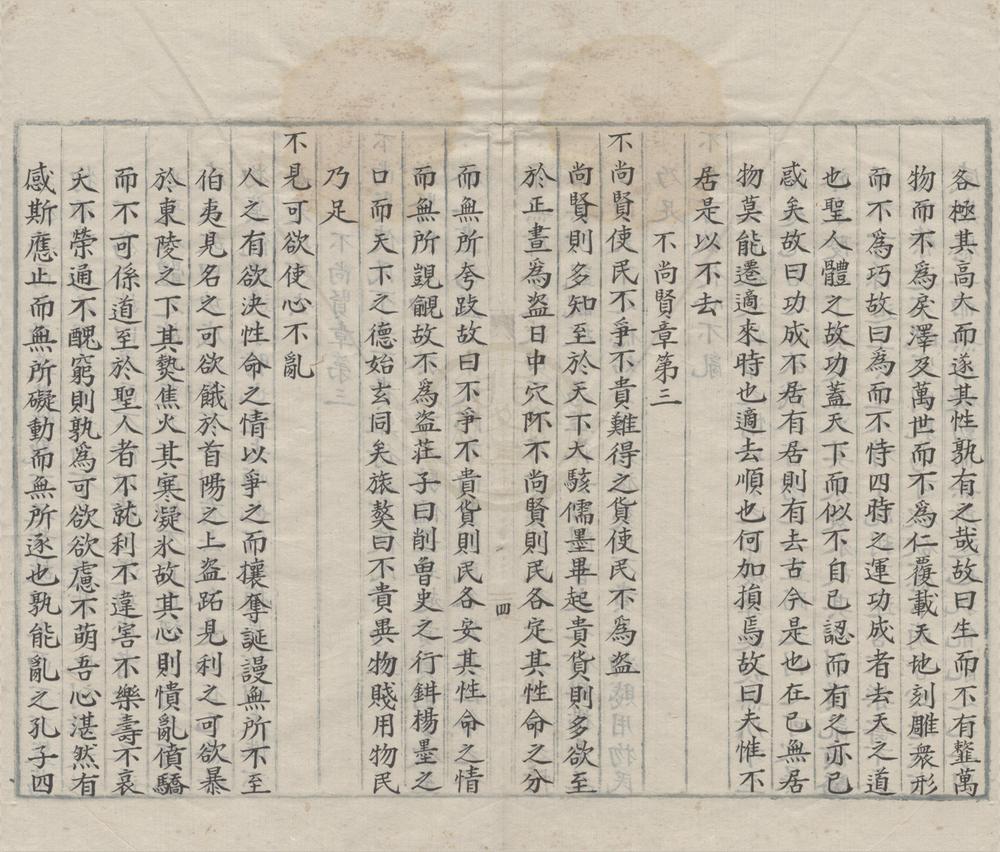 各極其高大而遂其性孰有之哉故曰生而不有𩐋萬
物而不為戾澤及萬世而不為仁覆載天地刻雕衆形
而不為巧故曰為而不恃四時之運功成者去天之道
也聖人體之故功蓋天下而似不自己認而有之亦已
惑矣故曰功成不居有居則有去古今是也在己無居
物莫能遷適來時也適去順也何加損焉故曰夫惟不
居是以不去
不尚賢章第三
不尚賢使民不爭不貴難得之貨使民不為盜
尚賢則多知至於天下大駭儒墨畢起貴貨則多欲至
於正晝為盜日中穴阫不尚賢則民各定其性命之分
而無所夸跂故曰不爭不貴貨則民各安其性命之情
而無所覬覦故不為盜莊子曰削曾史之行鉗楊墨之
口而天下之德始玄同矣旅獒曰不貴異物賤用物民
乃足
不見可欲使心不亂
人之有欲決性命之情以爭之而攘奪誕謾無所不至
伯夷見名之可欲餓於首陽之上盜跖見利之可欲暴
於東陵之下其𤍠焦火其寒凝氷故其心則憒亂僨驕
而不可係道至於聖人者不就利不違害不樂壽不哀
夭不榮通不醜窮則孰為可欲欲慮不萌吾心湛然有
感斯應止而無所礙動而無所逐也孰能亂之孔子四
四